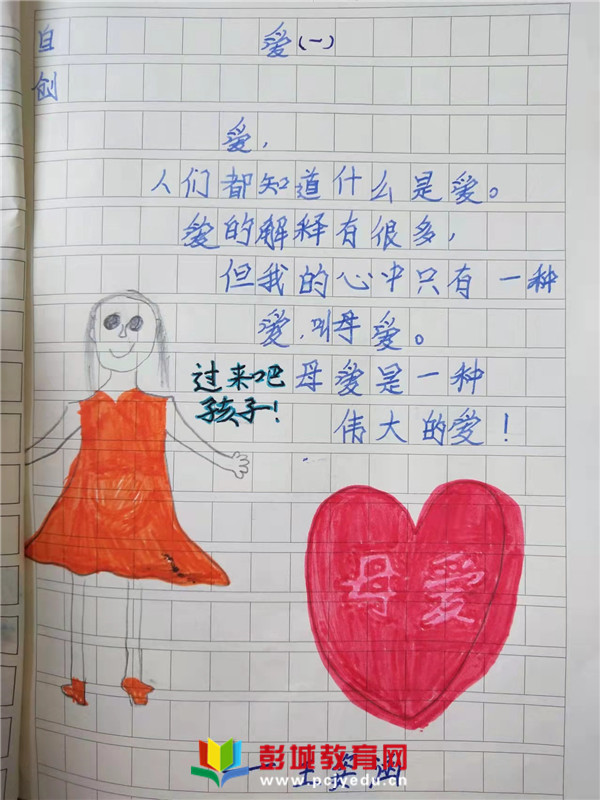 自创
爱(一)
爱,
人们都知道什么是爱。
爱的解释有很多,
但我的心中只有一种
爱,叫母爱。
母爱是一种
伟大的爱!
过来吧
孩子!
母爱
彭城教育网
www.pcjyedu.cn